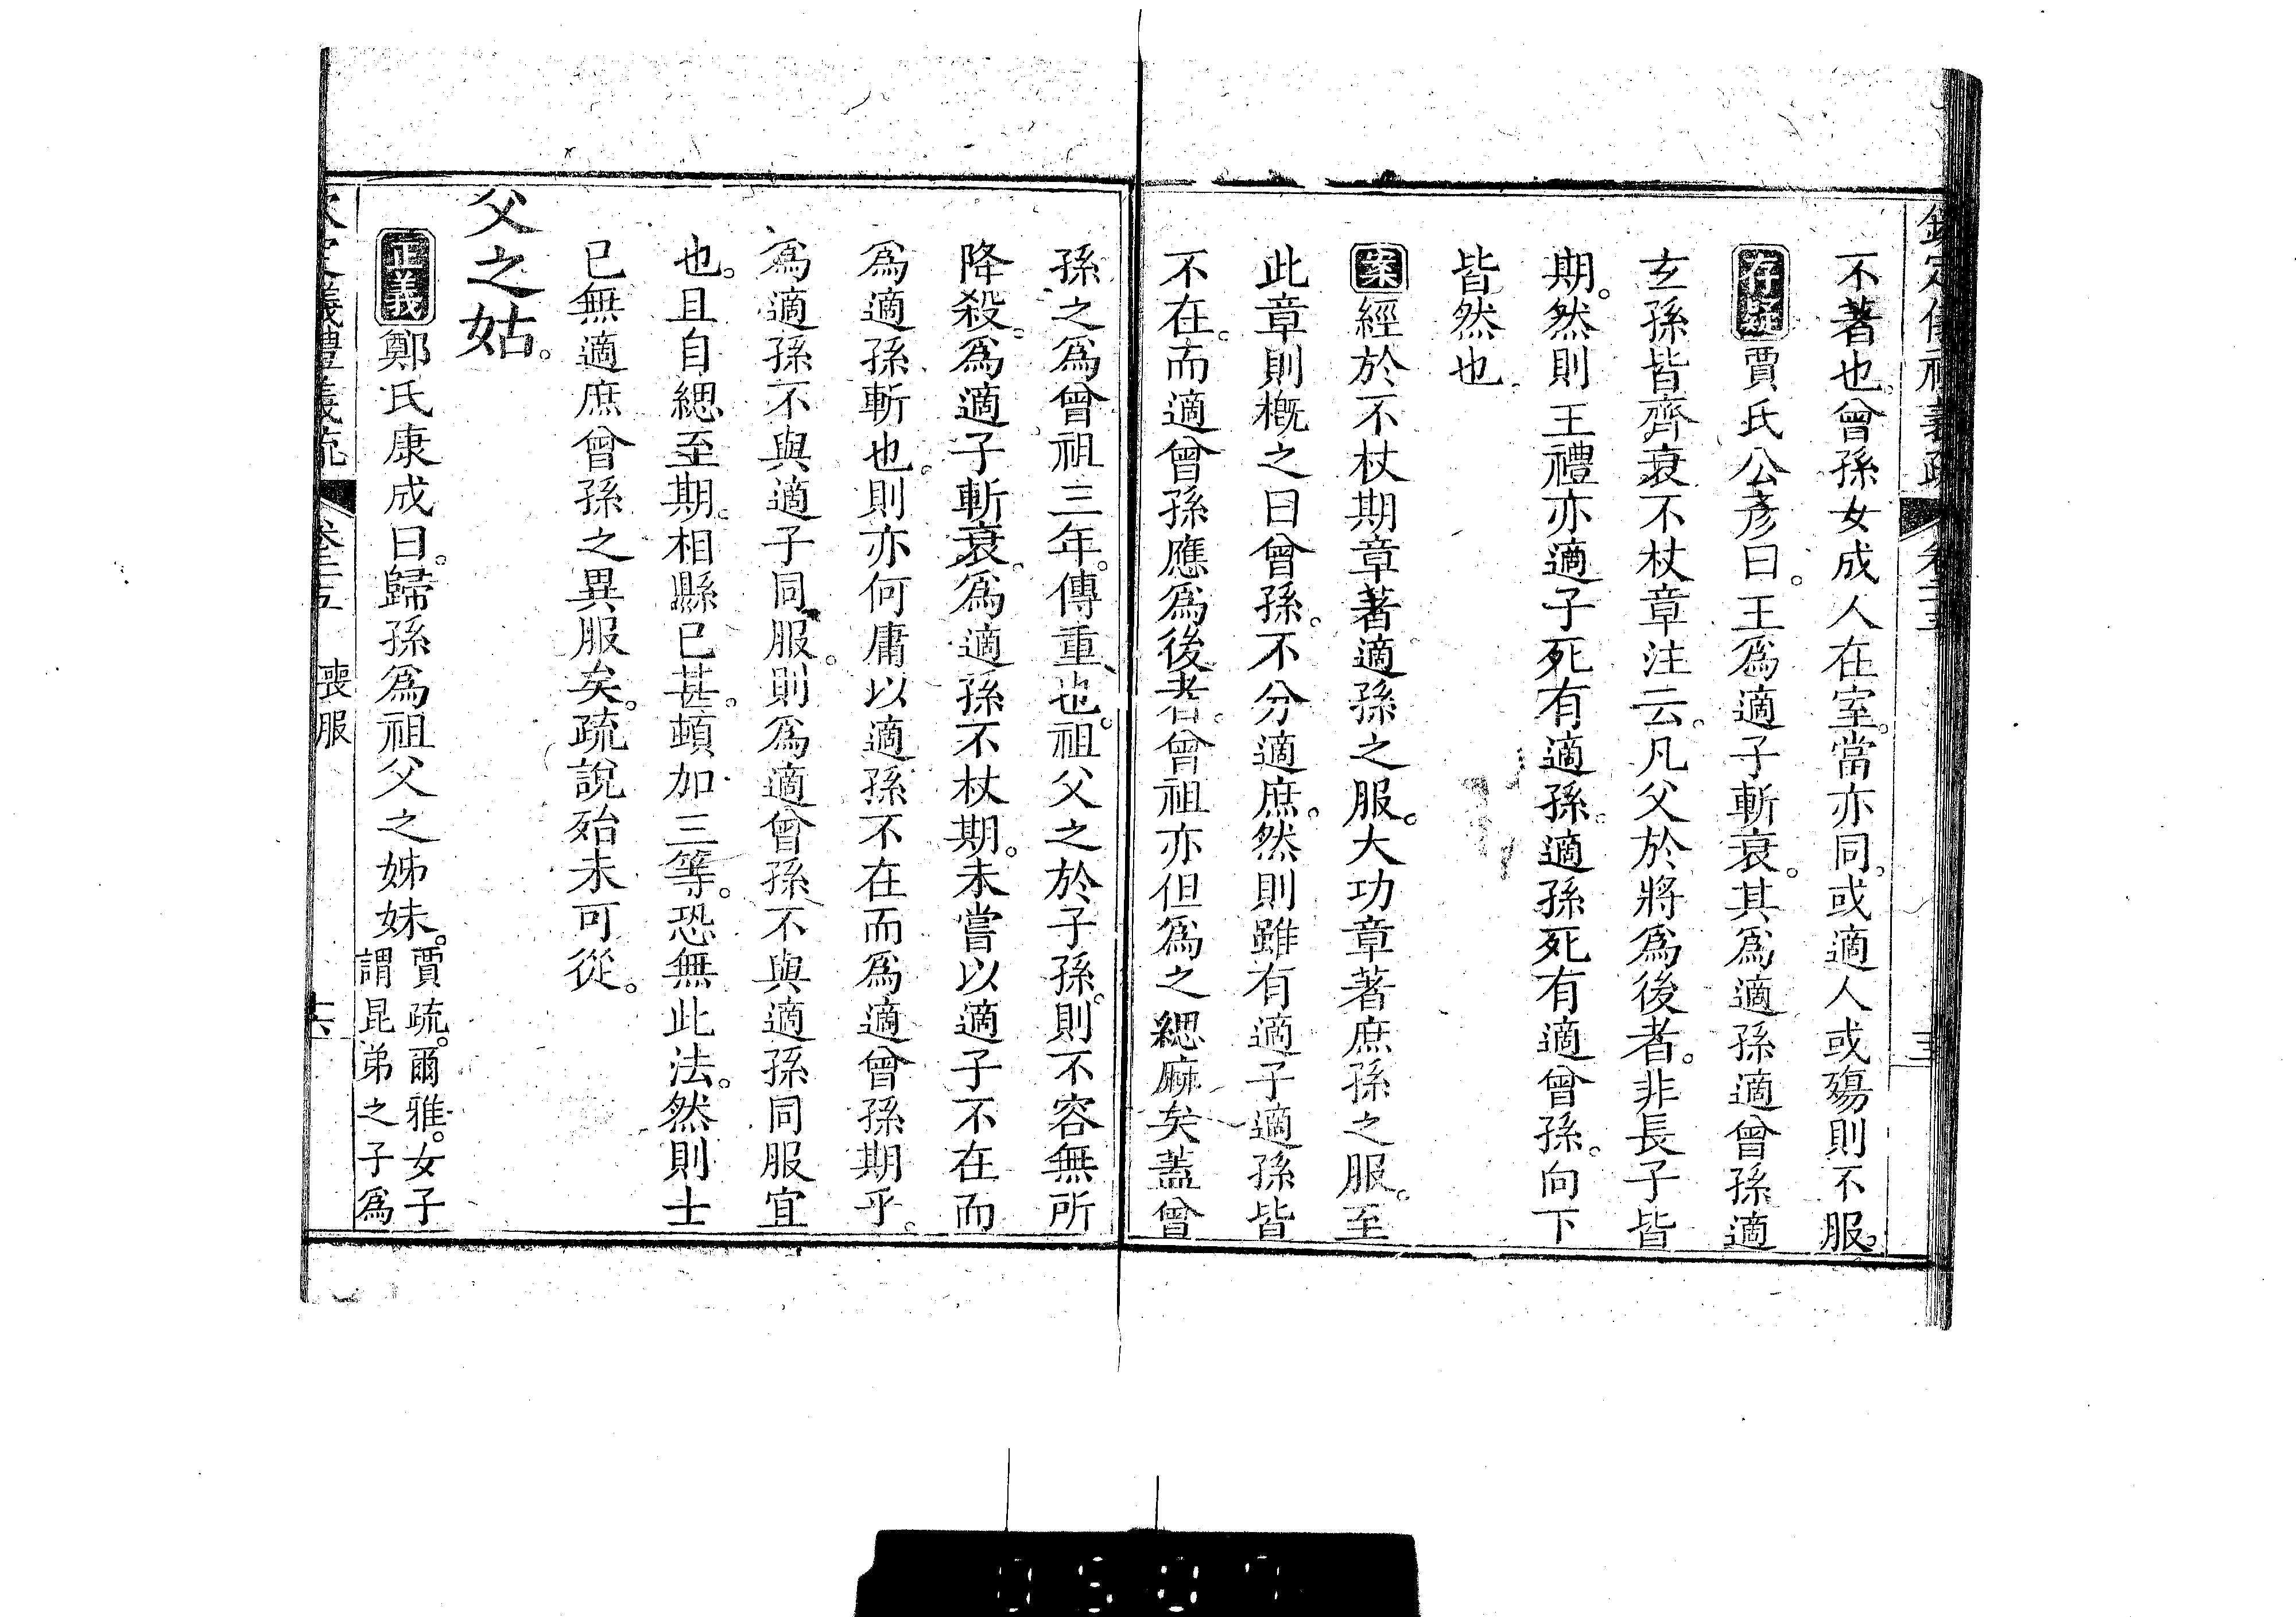 不著也。曾孫女成人在室。當亦同。或適人或殤則不服。
存疑賈氏公彥曰。王爲適子斬衰。其爲適孫適曾孫適
玄孫皆齊衰不杖章注云。凡父於將爲後者。非長子皆
期。然則王禮亦適子死有適孫。適孫死有適曾孫。向下
皆然也。
案經於不杖期章著適孫之服。大功章著庶孫之服。至
此章則槪之曰曾孫。不分適庶。然則雖有適子適孫皆
不在。而適曾孫應爲後者。曾祖亦但爲之緦麻矣蓋曾
孫之爲曾祖三年。傳重也。祖父之於子孫。則不容無所
降殺。爲適子斬衰。爲適孫不杖期。未嘗以適子不在而
爲適孫斬也。則亦何庸以適孫不在而爲適曾孫期乎。
爲適孫不與適子同服。則爲適曾孫不與適孫同服宜
也。且自緦至期。相縣已甚。頓加三等。恐無此法。然則士
已無適庶曾孫之異服矣。疏說殆未可從。
父之姑。
正義鄭氏康成曰。歸孫爲祖父之姊妹。賈疏。爾雅。女子
謂昆弟之子爲
喪服